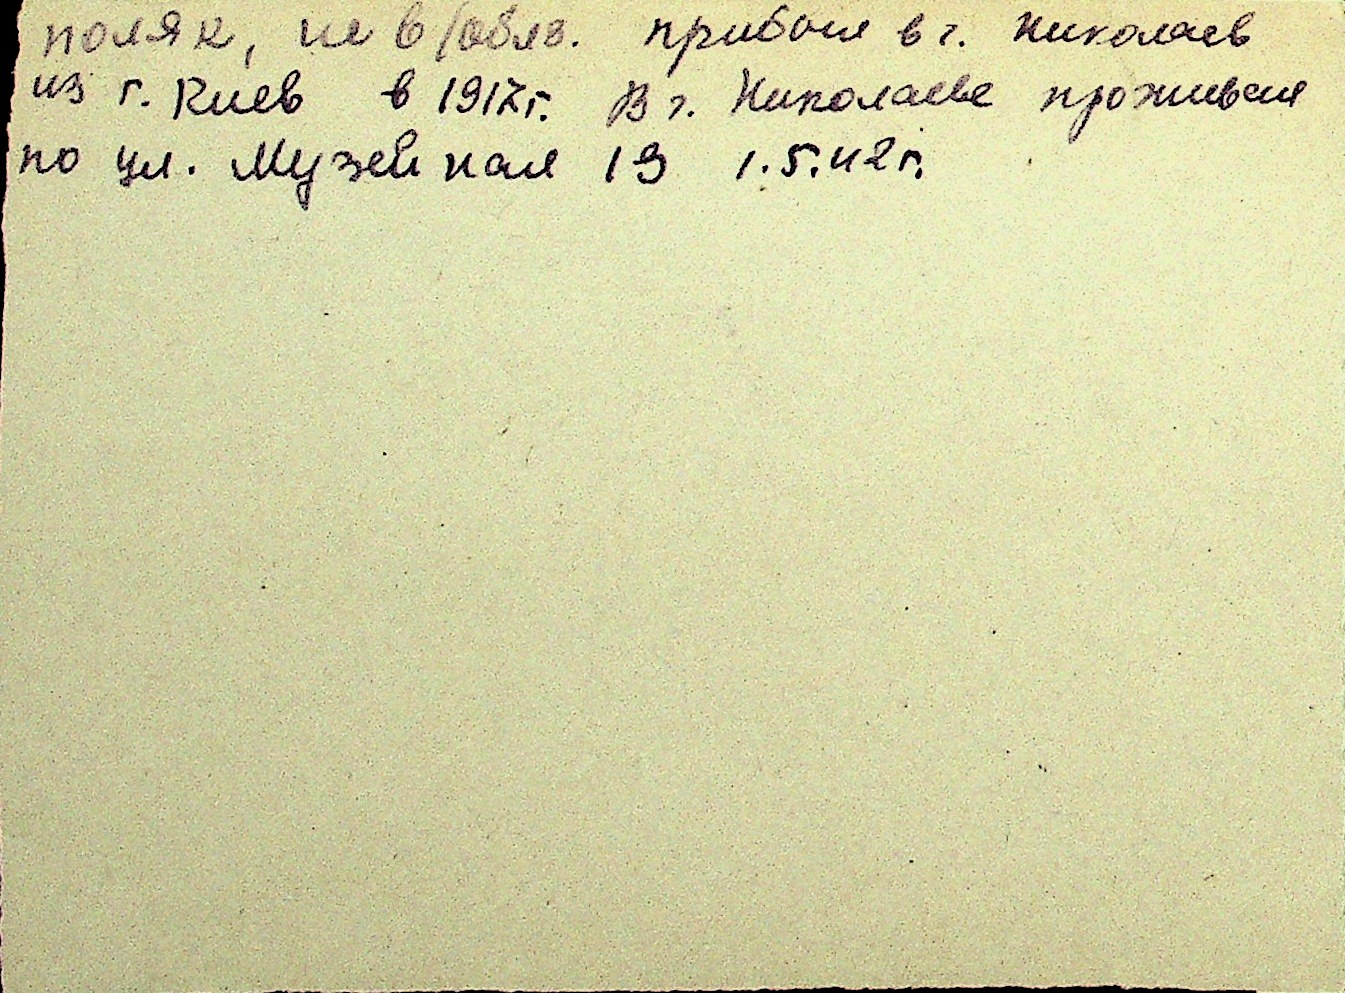 поляк, не в/обяз. прибыл в г. Николаев
из г. Киев в 1917г. В г. Николаеве проживал
по ул. Музейная 19 1.5.42г.